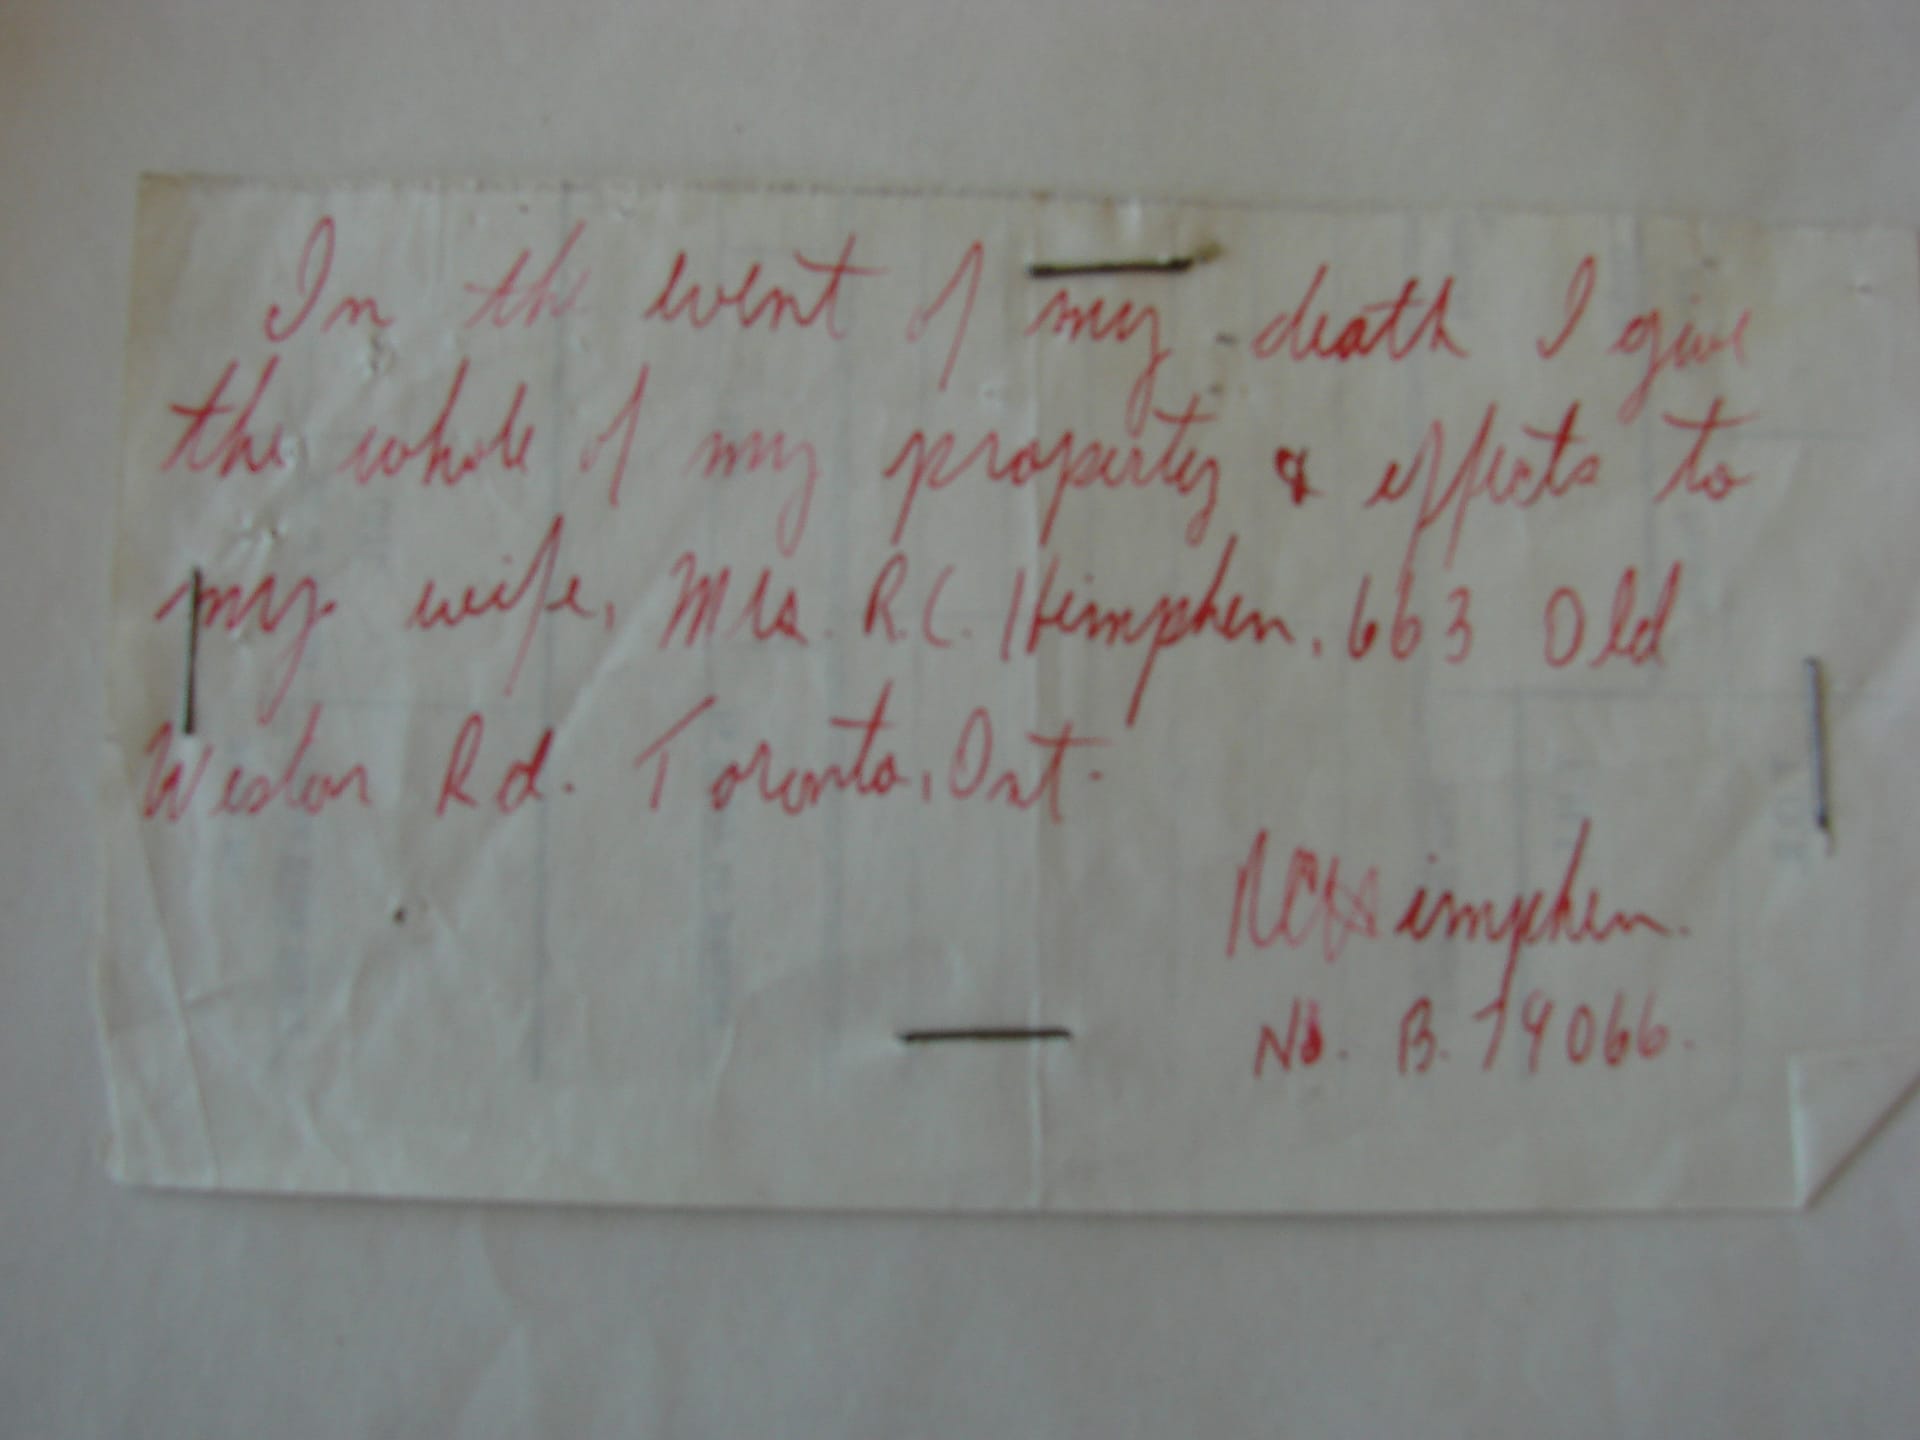 In the event of my death I give
the whole of my property & effects to
my wife, Mrs. R.C. Himphen, 663 Old
Weston Rd. Toronto, Ont.
RCHimphen.
No. B. 79066.